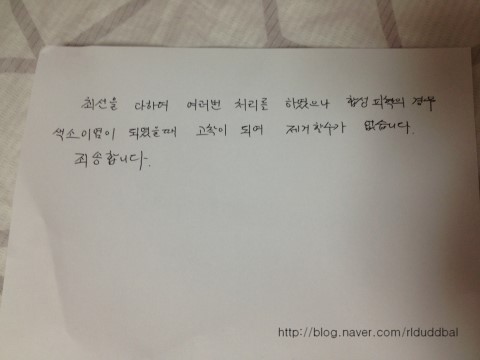 최선을 다하여 여러번 처리를 하였으나 합성피혁의 경우
색소이염이 되었을때 고착이 되어 제거할수가 없습니다.
죄송합니다.
http://blog.naver.com/rlduddbal